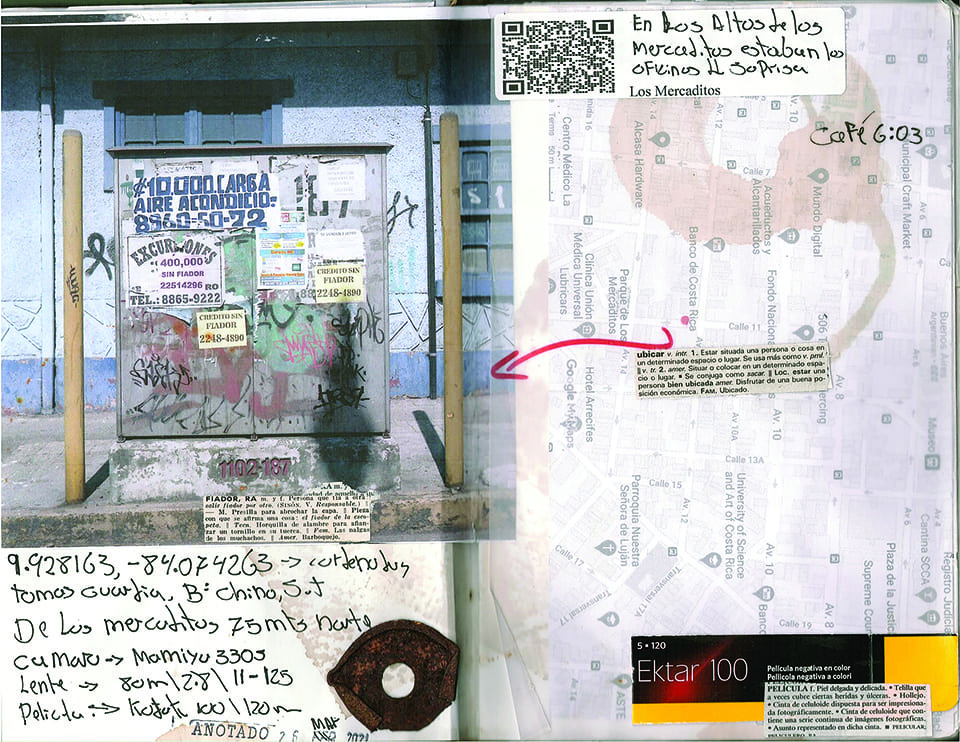 En Los Altos de los
Mercaditos estaban las
oficinas d Saprisa
Los Mercaditos
Café 6:03
₡10,000 CARGA
AIRE ACONDICIO-
8960-50-72
EXCURSIONES
400,000
SIN FIADOR
22514296
TEL.: 8865-9222
CREDITO SIN
FIADOR
2248-4890
CREDITO SIN
FIADOR
2248-4890
1102-187
FIADOR, RA m. y f. Persona que fía a otra:
salir fiador por otro. (SINÓN. V. Responsable.) ||
— M. Presilla para abrochar la capa. || Pieza
con que se afirma una cosa: el fiador de la esco-
peta. || Tecn. Horquilla de alambre para afian-
zar un tornillo en su tuerca. || Fam. Las nalgas
de los muchachos. || Amer. Barboquejo.
9.928163, -84.074263 → cordenadas
tomas guardia, Bº Chino, S.J
De los mercaditos 75 mts norte
camara → Mamiya 330s
Lente → 80m \ 2.8 \ 11-125
Pelicula →
100 \ 120m
ANOTADO 26
2021
Centro Médico La
Alcasa Hardware
Av. 12
Av. 10
Calle 7
Acueductos y
Alcantarillados
Mundo Digital
Municipal Craft Market
Av. 6
Terms
50 m
Clínica Unión
Médica Universal
Lubricars
Parque de Los
Mercaditos
Banco de Costa Rica
Av. 14
Calle 11
Fondo Nacional
506
Av. 8
Buenos Aires
ubicar v. intr. 1. Estar situada una persona o cosa en
un determinado espacio o lugar. Se usa más como v. prnl.
|| v. tr. 2. amer. Situar o colocar en un determinado espa-
cio o lugar. • Se conjuga como sacar. || Loc. estar una
persona bien ubicada amer. Disfrutar de una buena po-
sición económica. FAM. Ubicado.
Google My Maps
Hotel Arrecifes
Av. 12
Av. 10A
Av. 10
Av. 8
Museo
Calle 13A
Calle 15
Parroquia Nuestra
Señora de Luján
University of Science
and Art of Costa Rica
Av. 10
Av. 8
Av. 6
Cantina SCCA
Registro Judicial
Plaza de la Justicia
Supreme Court
Transversal 17
Transversal 17A
Calle 19
Banco
Av. 14
ASTE
5 • 120
Ektar 100
Película negativa en color
Pellicola negativa a colori
PELÍCULA f. Piel delgada y delicada. • Telilla que
a veces cubre ciertas heridas y úlceras. • Hollejo.
• Cinta de celuloide dispuesta para ser impresiona-
da fotográficamente. • Cinta de celuloide que con-
tiene una serie continua de imágenes fotográficas.
• Asunto representado en dicha cinta. ■ PELICULAR;